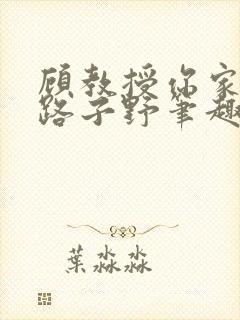 顾教授你家
路子野笔趣
葉淼淼